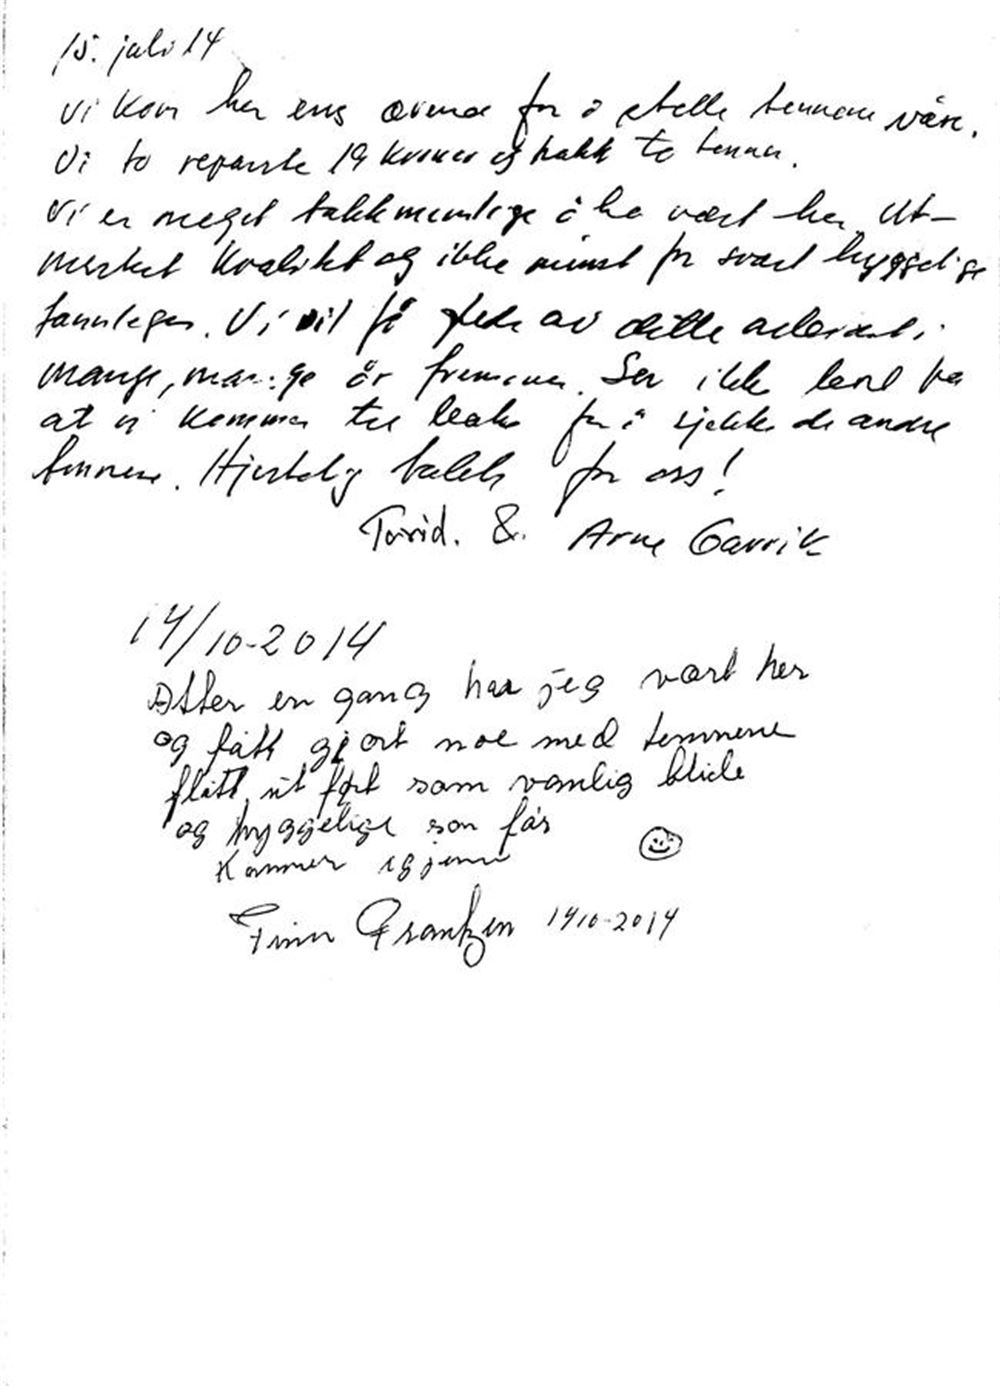 15. juli 14
Vi kom her ens ærend for å stelle tennene våre.
Vi to reparerte 19 kroner og trakk to tenner.
Vi er meget takknemlige å ha vært her. Ut-
merket kvalitet og ikke minst for svært hyggelige
tannleger. Vi vil få glede av dette arbeidet i
mange, mange år fremover. Ser ikke bort fra
at vi kommer til bake for å sjekke de andre
tennene. Hjertelig takk for oss!
Torid. & Arne Garvik
14/10-2014
Atter en gang har jeg vært her
og fått gjort noe med tennene
flått ut ført som vanlig blide
og hyggelige som fås
Kommer igjenn
Finn Frantzen 1410-2014